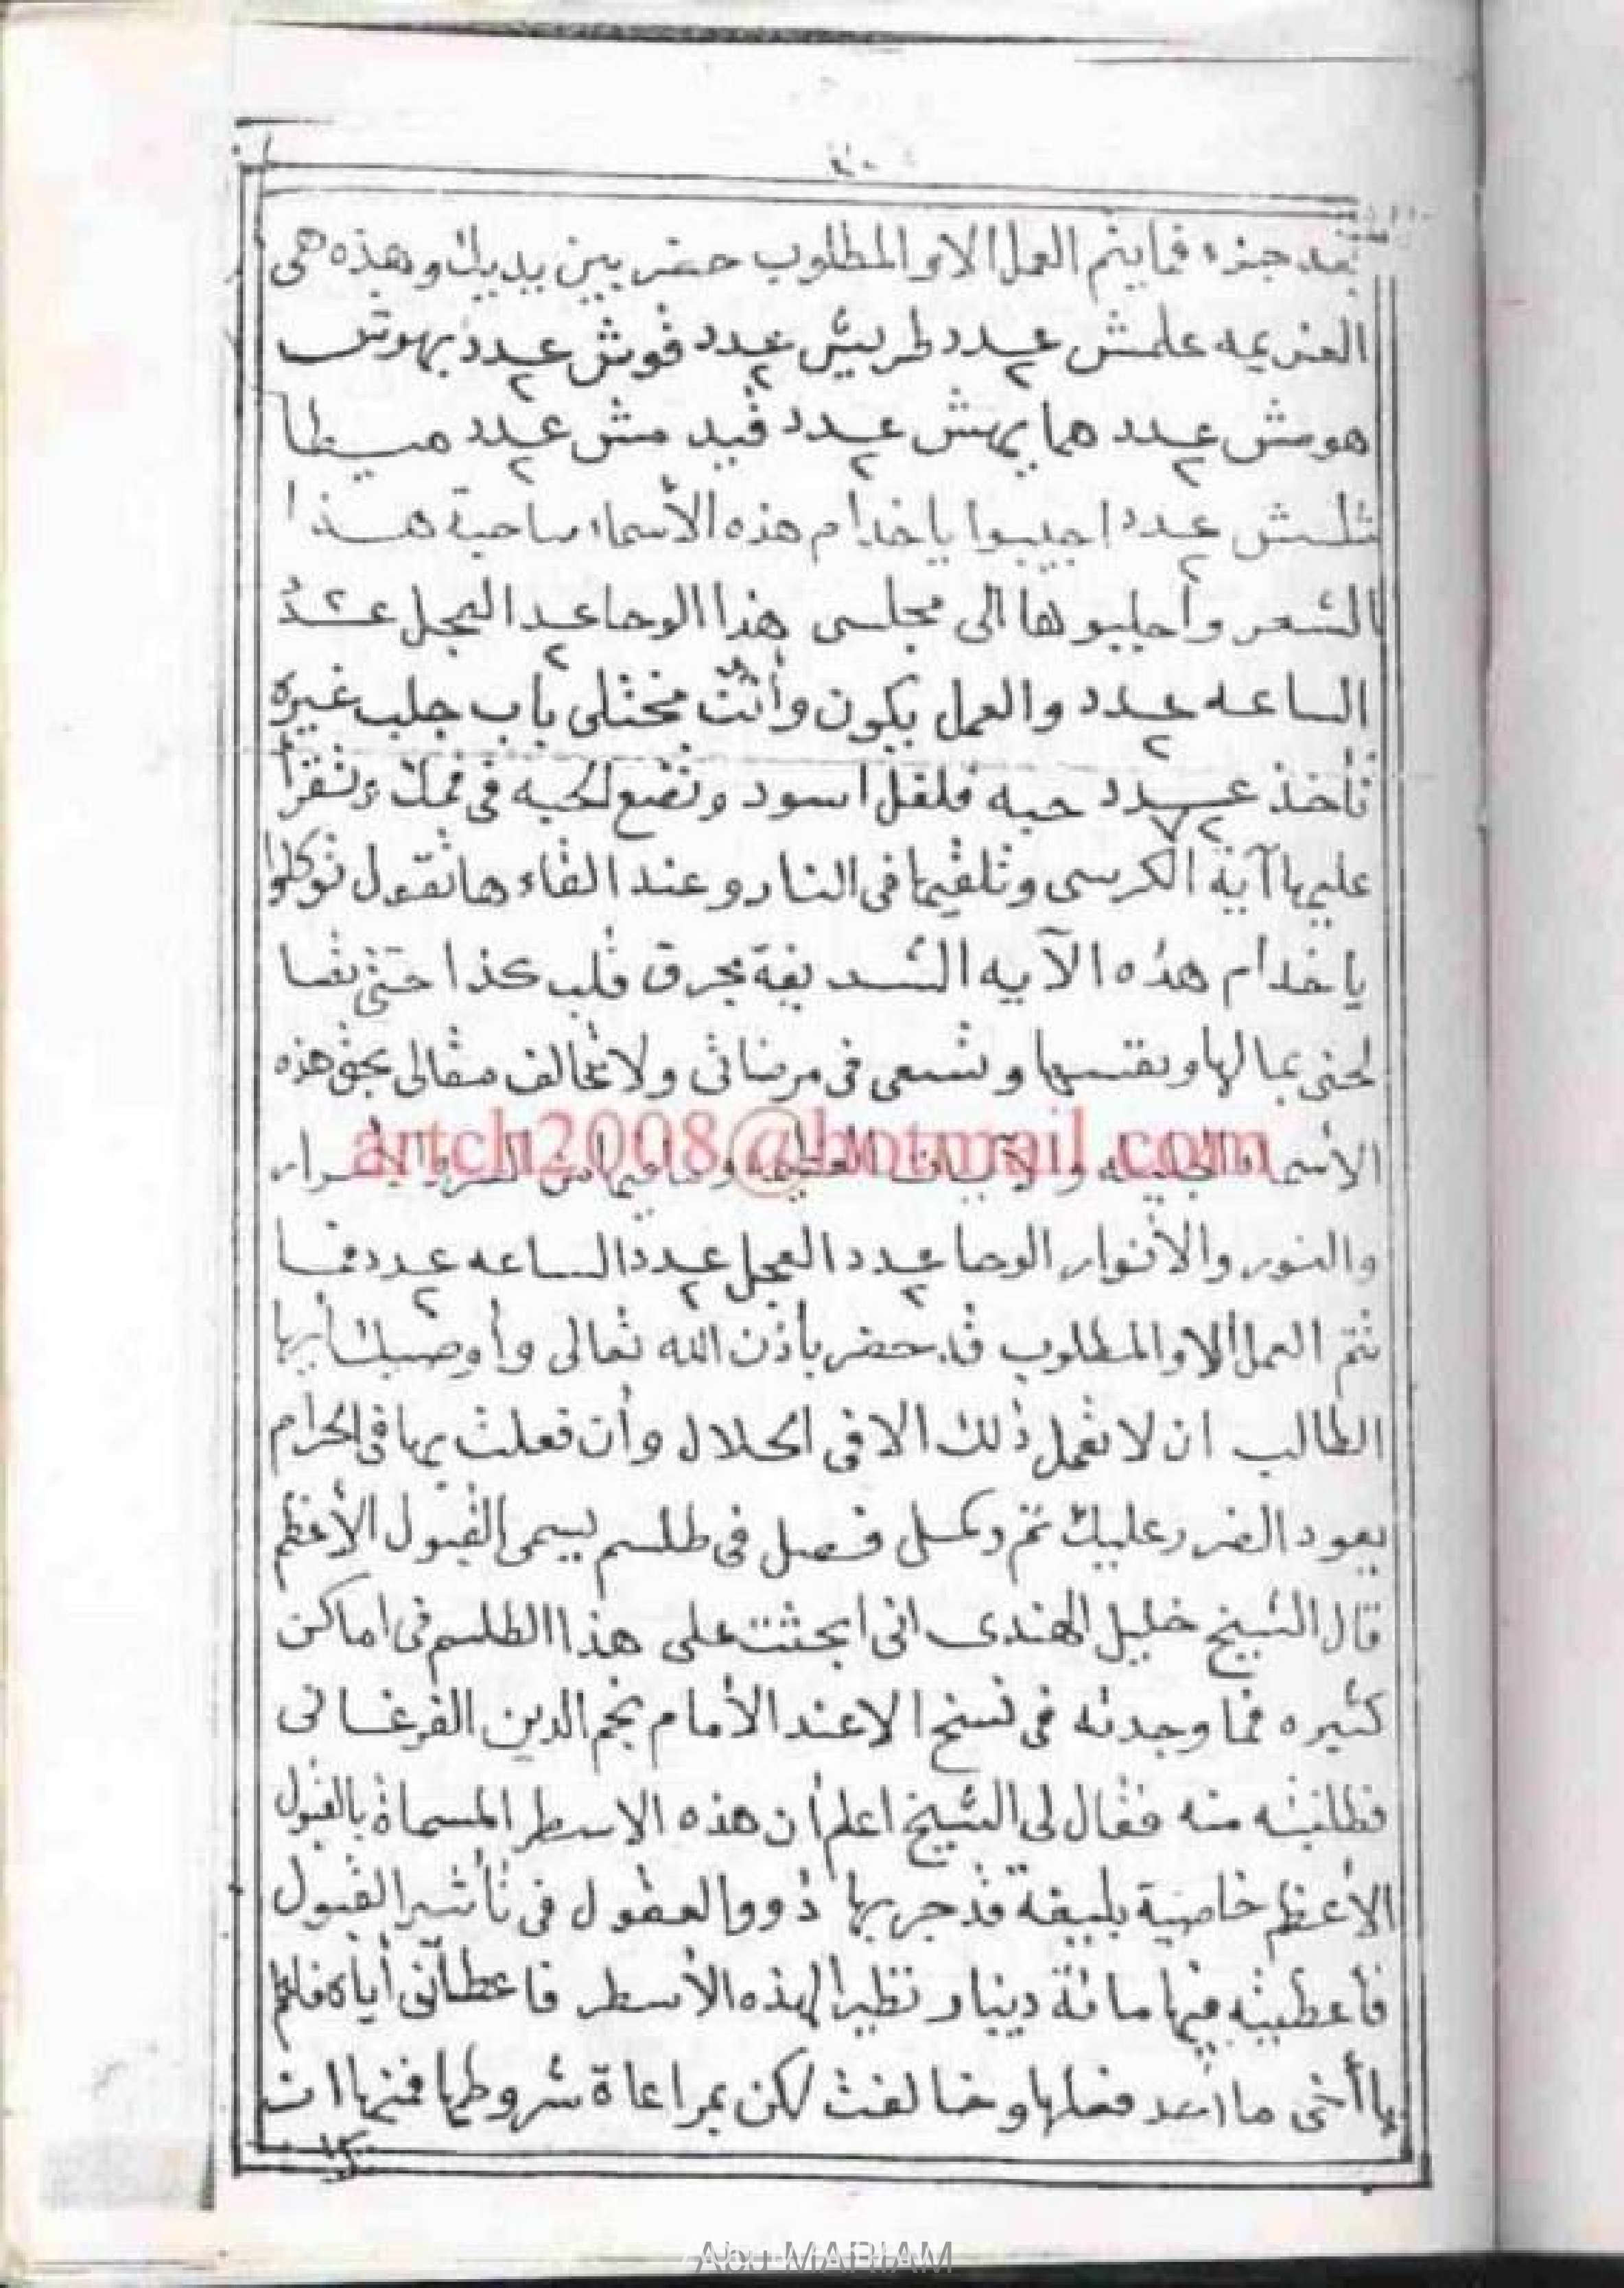 فمايتم العمل الا والمطلوب حضر بين يديك وهذه هى
العزيمه علمش عدد ٢ طريش عدد ٢ قوش عدد ٢ بهوتش
هوش عدد ٢ همايهش عدد ٢ قيد مش عدد ٢ هيطا
شلش عدد ٢ اجيبوا ياخدام هذه الأسماء صاحبة هذا
الشعر وأجلبوها الى مجلسى هذا الوحا عدد ٢ العجل عدد
الساعه عدد ٢ والعمل يكون وأنت مختلى باب جلب غيره
تأخذ عدد ٧ حبه فلفل اسود وتضع لحبه فى فمك وتقرأ
عليها آية الكرسى وتلقيها فى النار وعند القاء ها تقول توكلوا
ياخدام هذه الآيه الشريفة بحرق قلب كذا حتى
بمالها ونفسها وتسعى فى مرضاتى ولا تخالف مقالى بحق هذه
الأسماء
والنور والأنوار الوحا عدد ٢ العجل عدد ٢ الساعه عدد ٢ فما
تتم العمل إلا والمطلوب قد حضر بأذن الله تعالى وأوصيك أيها
الطالب ان لا تعمل ذلك الا فى الحلال وأن فعلت بها فى الحرام
يعود الضرر عليك تم وكمل فصل فى طلسم يسمى القبول الأعظم
قال الشيخ خليل الهندى انى ابحثت على هذا الطلسم فى اماكن
كثيره فما وجدته فى نسخ الا عند الأمام نجم الدين الفرغانى
فطلبته منه فقال لى الشيخ اعلم أن هذه الاسطر المسماة بالقبول
الأعظم خاصية بليغة قد جربها ذووا العقول فى تأثير القبول
فأعطيته فيها مائة دينار نظيرا لهذه الأسطر فاعطانى أياه
يا أخى ما فعلها وخالفت لكن بمراعاة شروطها فمنها ان
artch2008@hotmail.com
Abu MARIAM